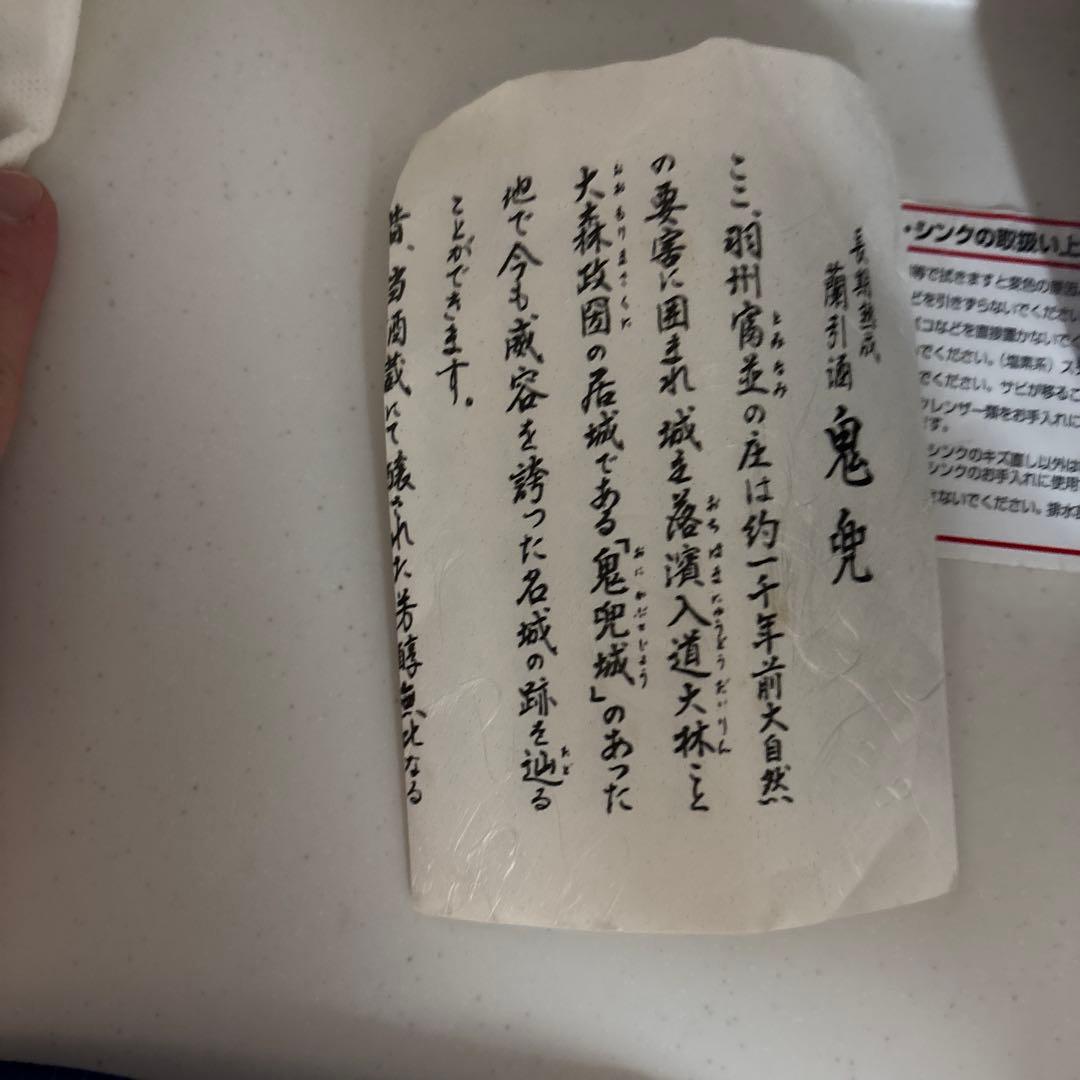 長期熟成
蘭引酒 鬼兜
ここ、羽州富並の庄は約一千年前大自然
とみなみ
の要害に囲まれ城主落濱入道大林こと
おちはまにゅうどうだいりん
大森政国の居城である「鬼兜城」のあった
おおもりまさくに
おにかぶとじょう
地で今も威容を誇った名城の跡を辿る
たど
ことができます。
昔、当酒蔵にて醸された芳醇無比なる
・シンクの取扱い上
等で拭きますと変色の原因
どを引きずらないでください
バコなどを直接置かないでく
でください。(塩素系)ス
でください。サビが移るこ
クレンザー類をお手入れに
す。
シンクのキズ直し以外は
シンクのお手入れに使用
さないでください。排水